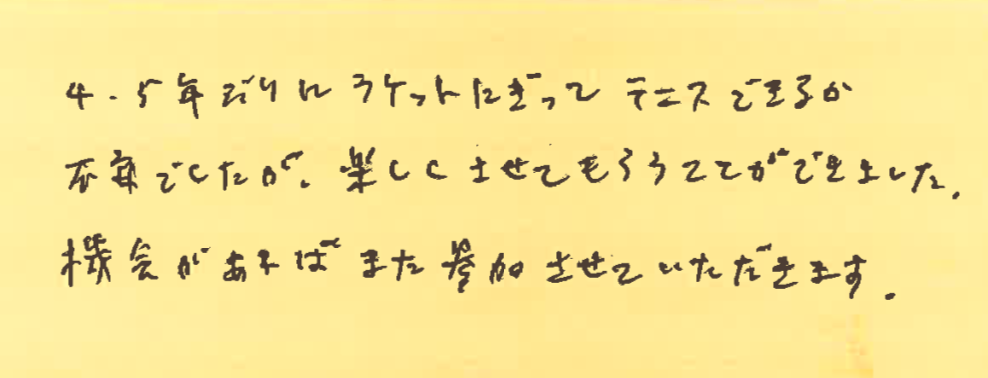 4.5年ぶりにラケットにぎってテニスできるか
不安でしたが、楽しくさせてもらうことができました。
機会があればまた参加させていただきます。